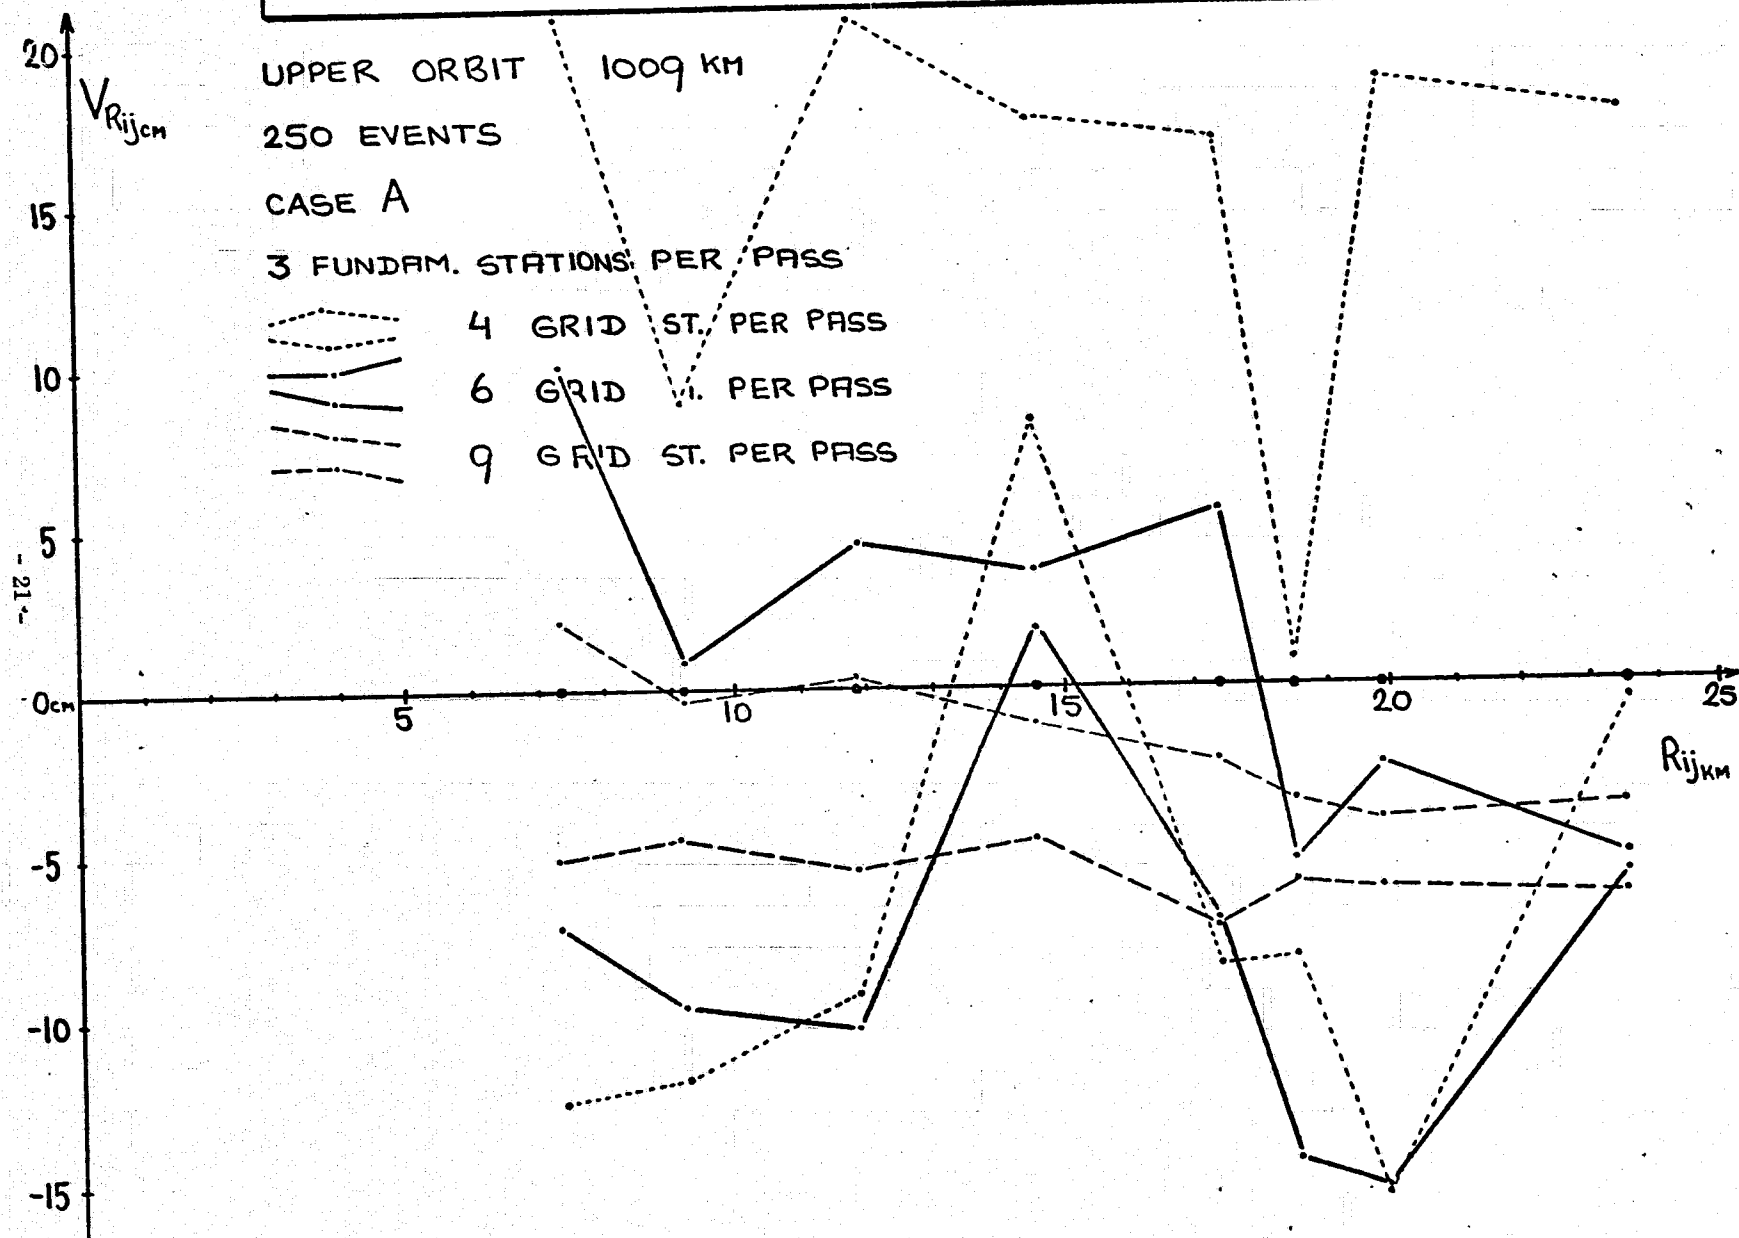 20
V Rij cm
UPPER ORBIT 1009 KM
250 EVENTS
CASE A
15
3 FUNDAM. STATIONS PER PASS
4 GRID ST. PER PASS
10
6 GRID PER PASS
9 GRID ST. PER PASS
5
- 21 -
0 cm
5
10
15
20
25
Rij KM
-5
-10
-15